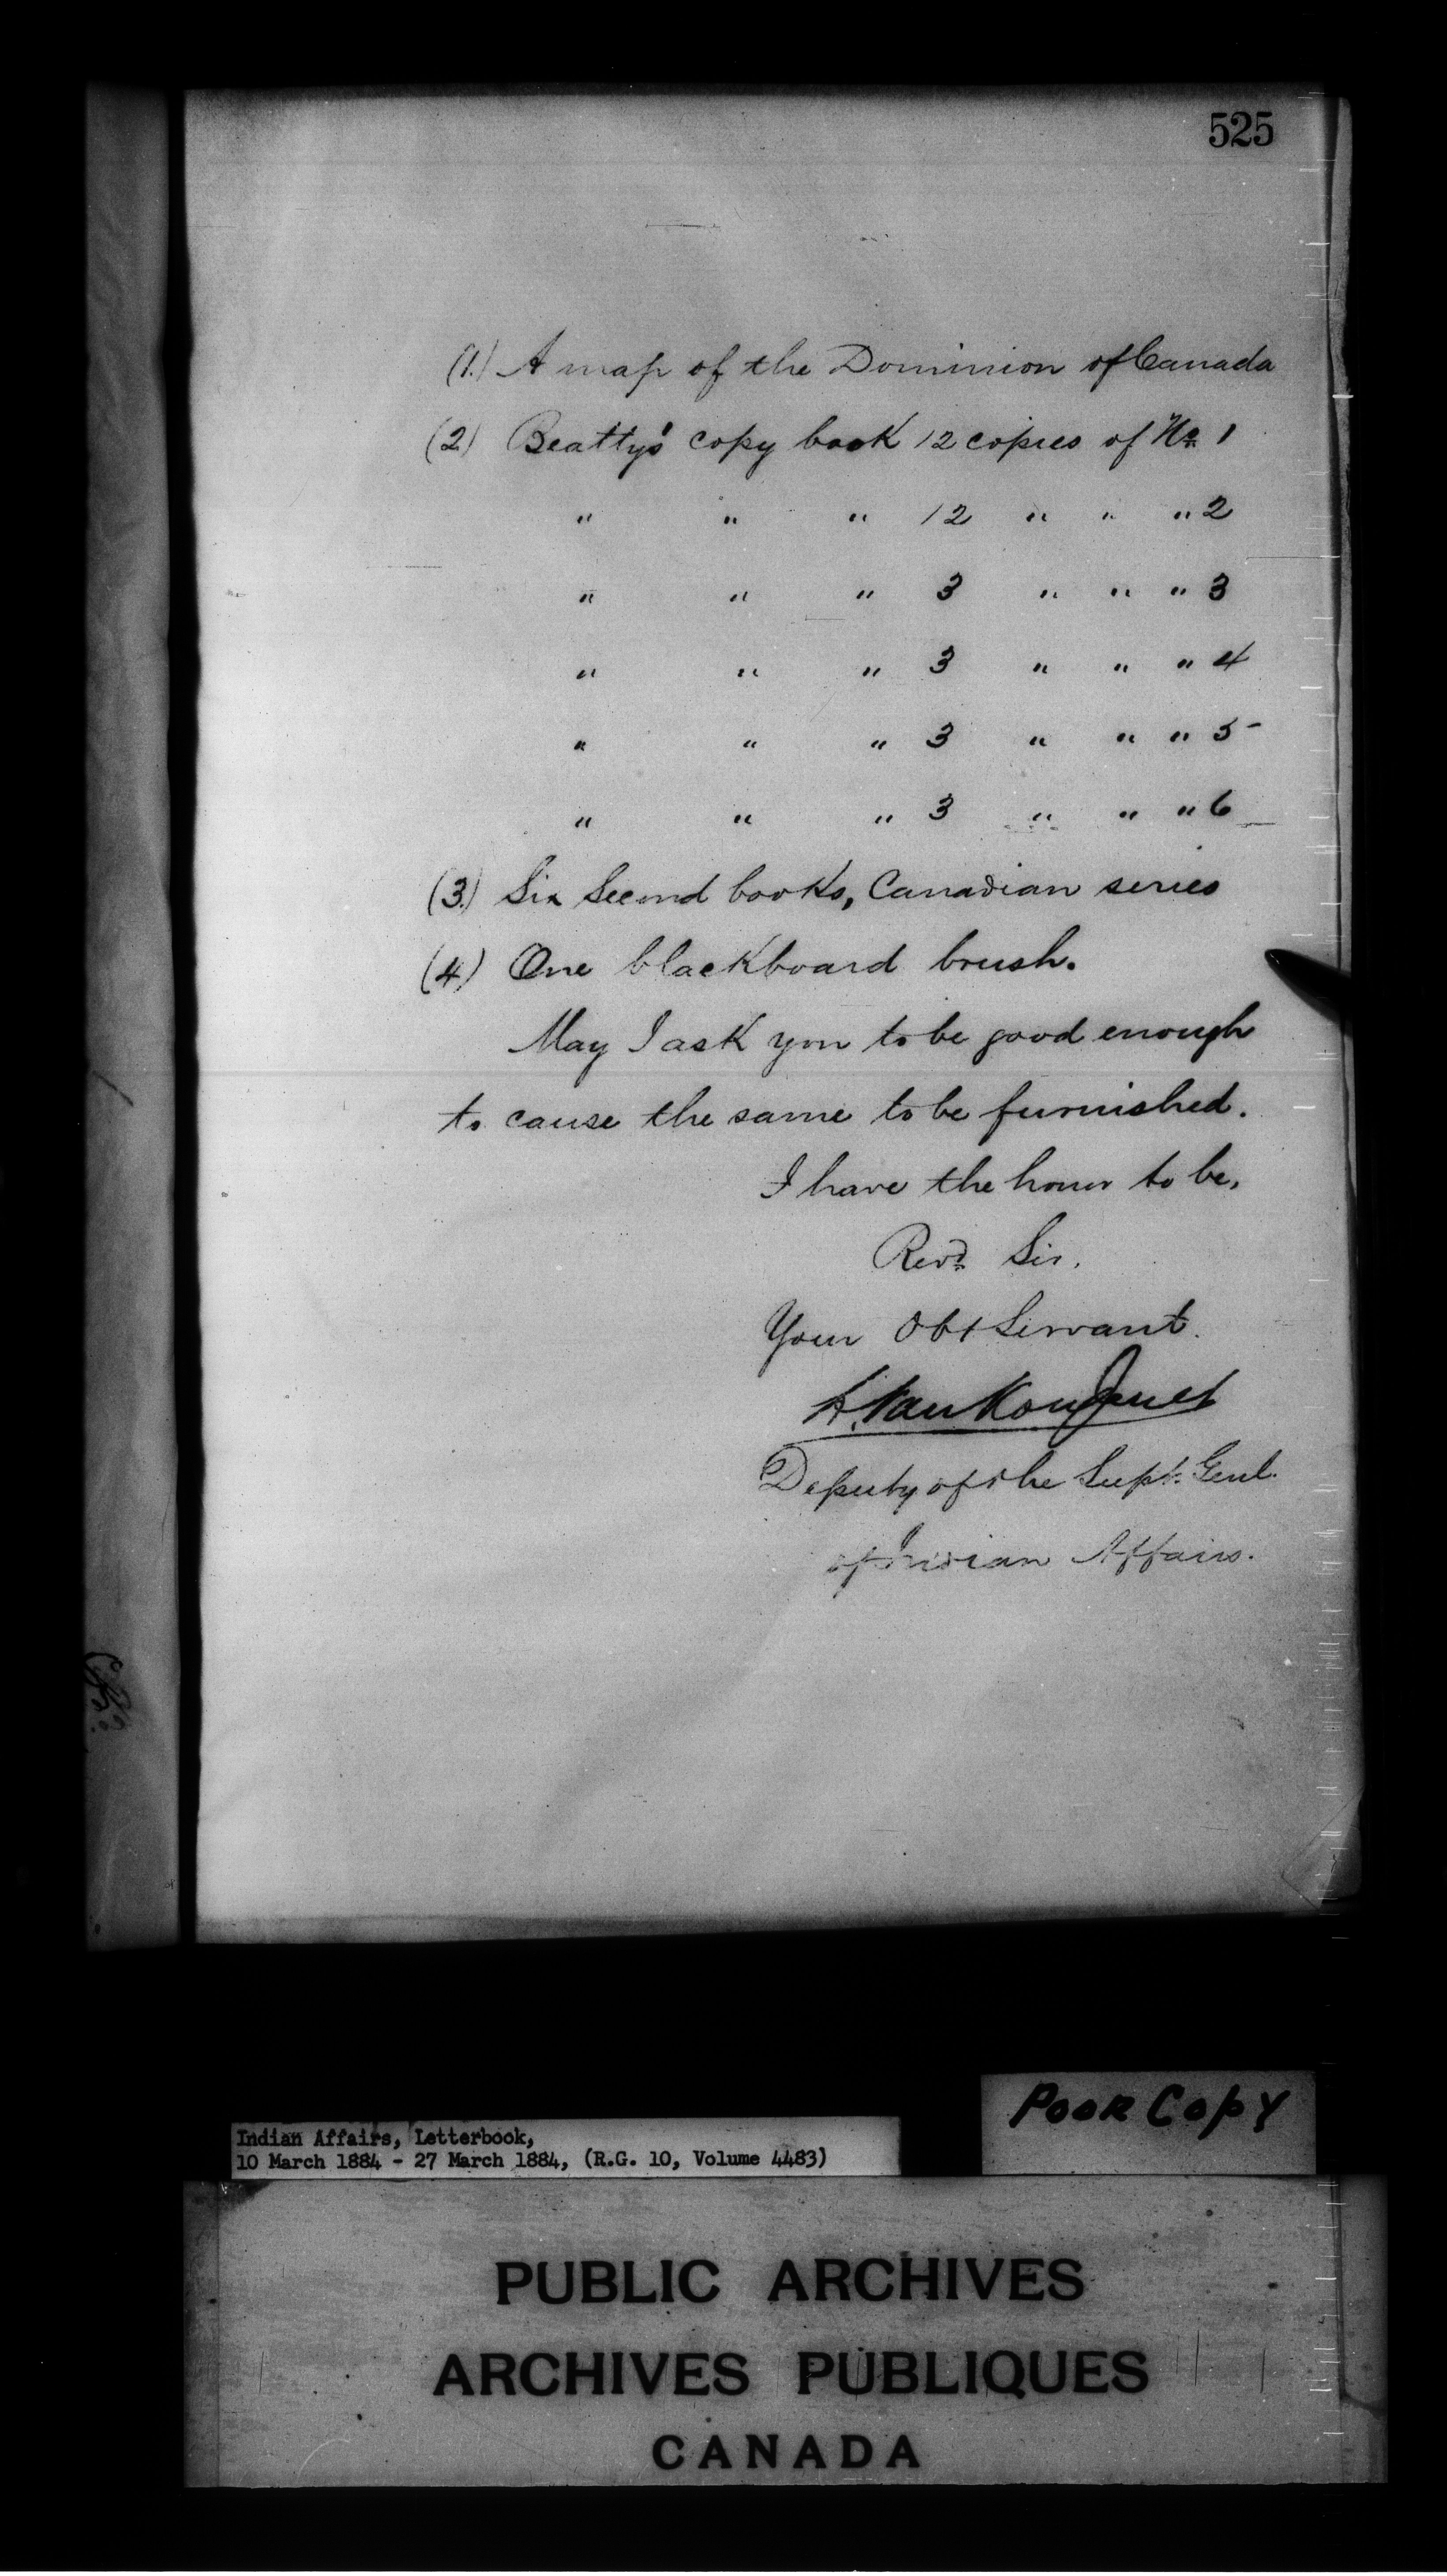 525
(1.) A map of the Dominion of Canada
(2) Beatty's copy book 12 copies of No. 1
" " " 12 " " " 2
" " " 3 " " " 3
" " " 3 " " " 4
" " " 3 " " " 5
" " " 3 " " " 6
(3.) Six Second books, Canadian series
(4) One blackboard brush.
May I ask you to be good enough
to cause the same to be furnished.
I have the honor to be,
Revd. Sir,
Your Obt Servant.
L. VanKoughnet
Deputy of the Supt. Genl.
of Indian Affairs.
Poor Copy
Indian Affairs, Letterbook,
10 March 1884 - 27 March 1884, (R.G. 10, Volume 4483)
PUBLIC ARCHIVES
ARCHIVES PUBLIQUES
CANADA